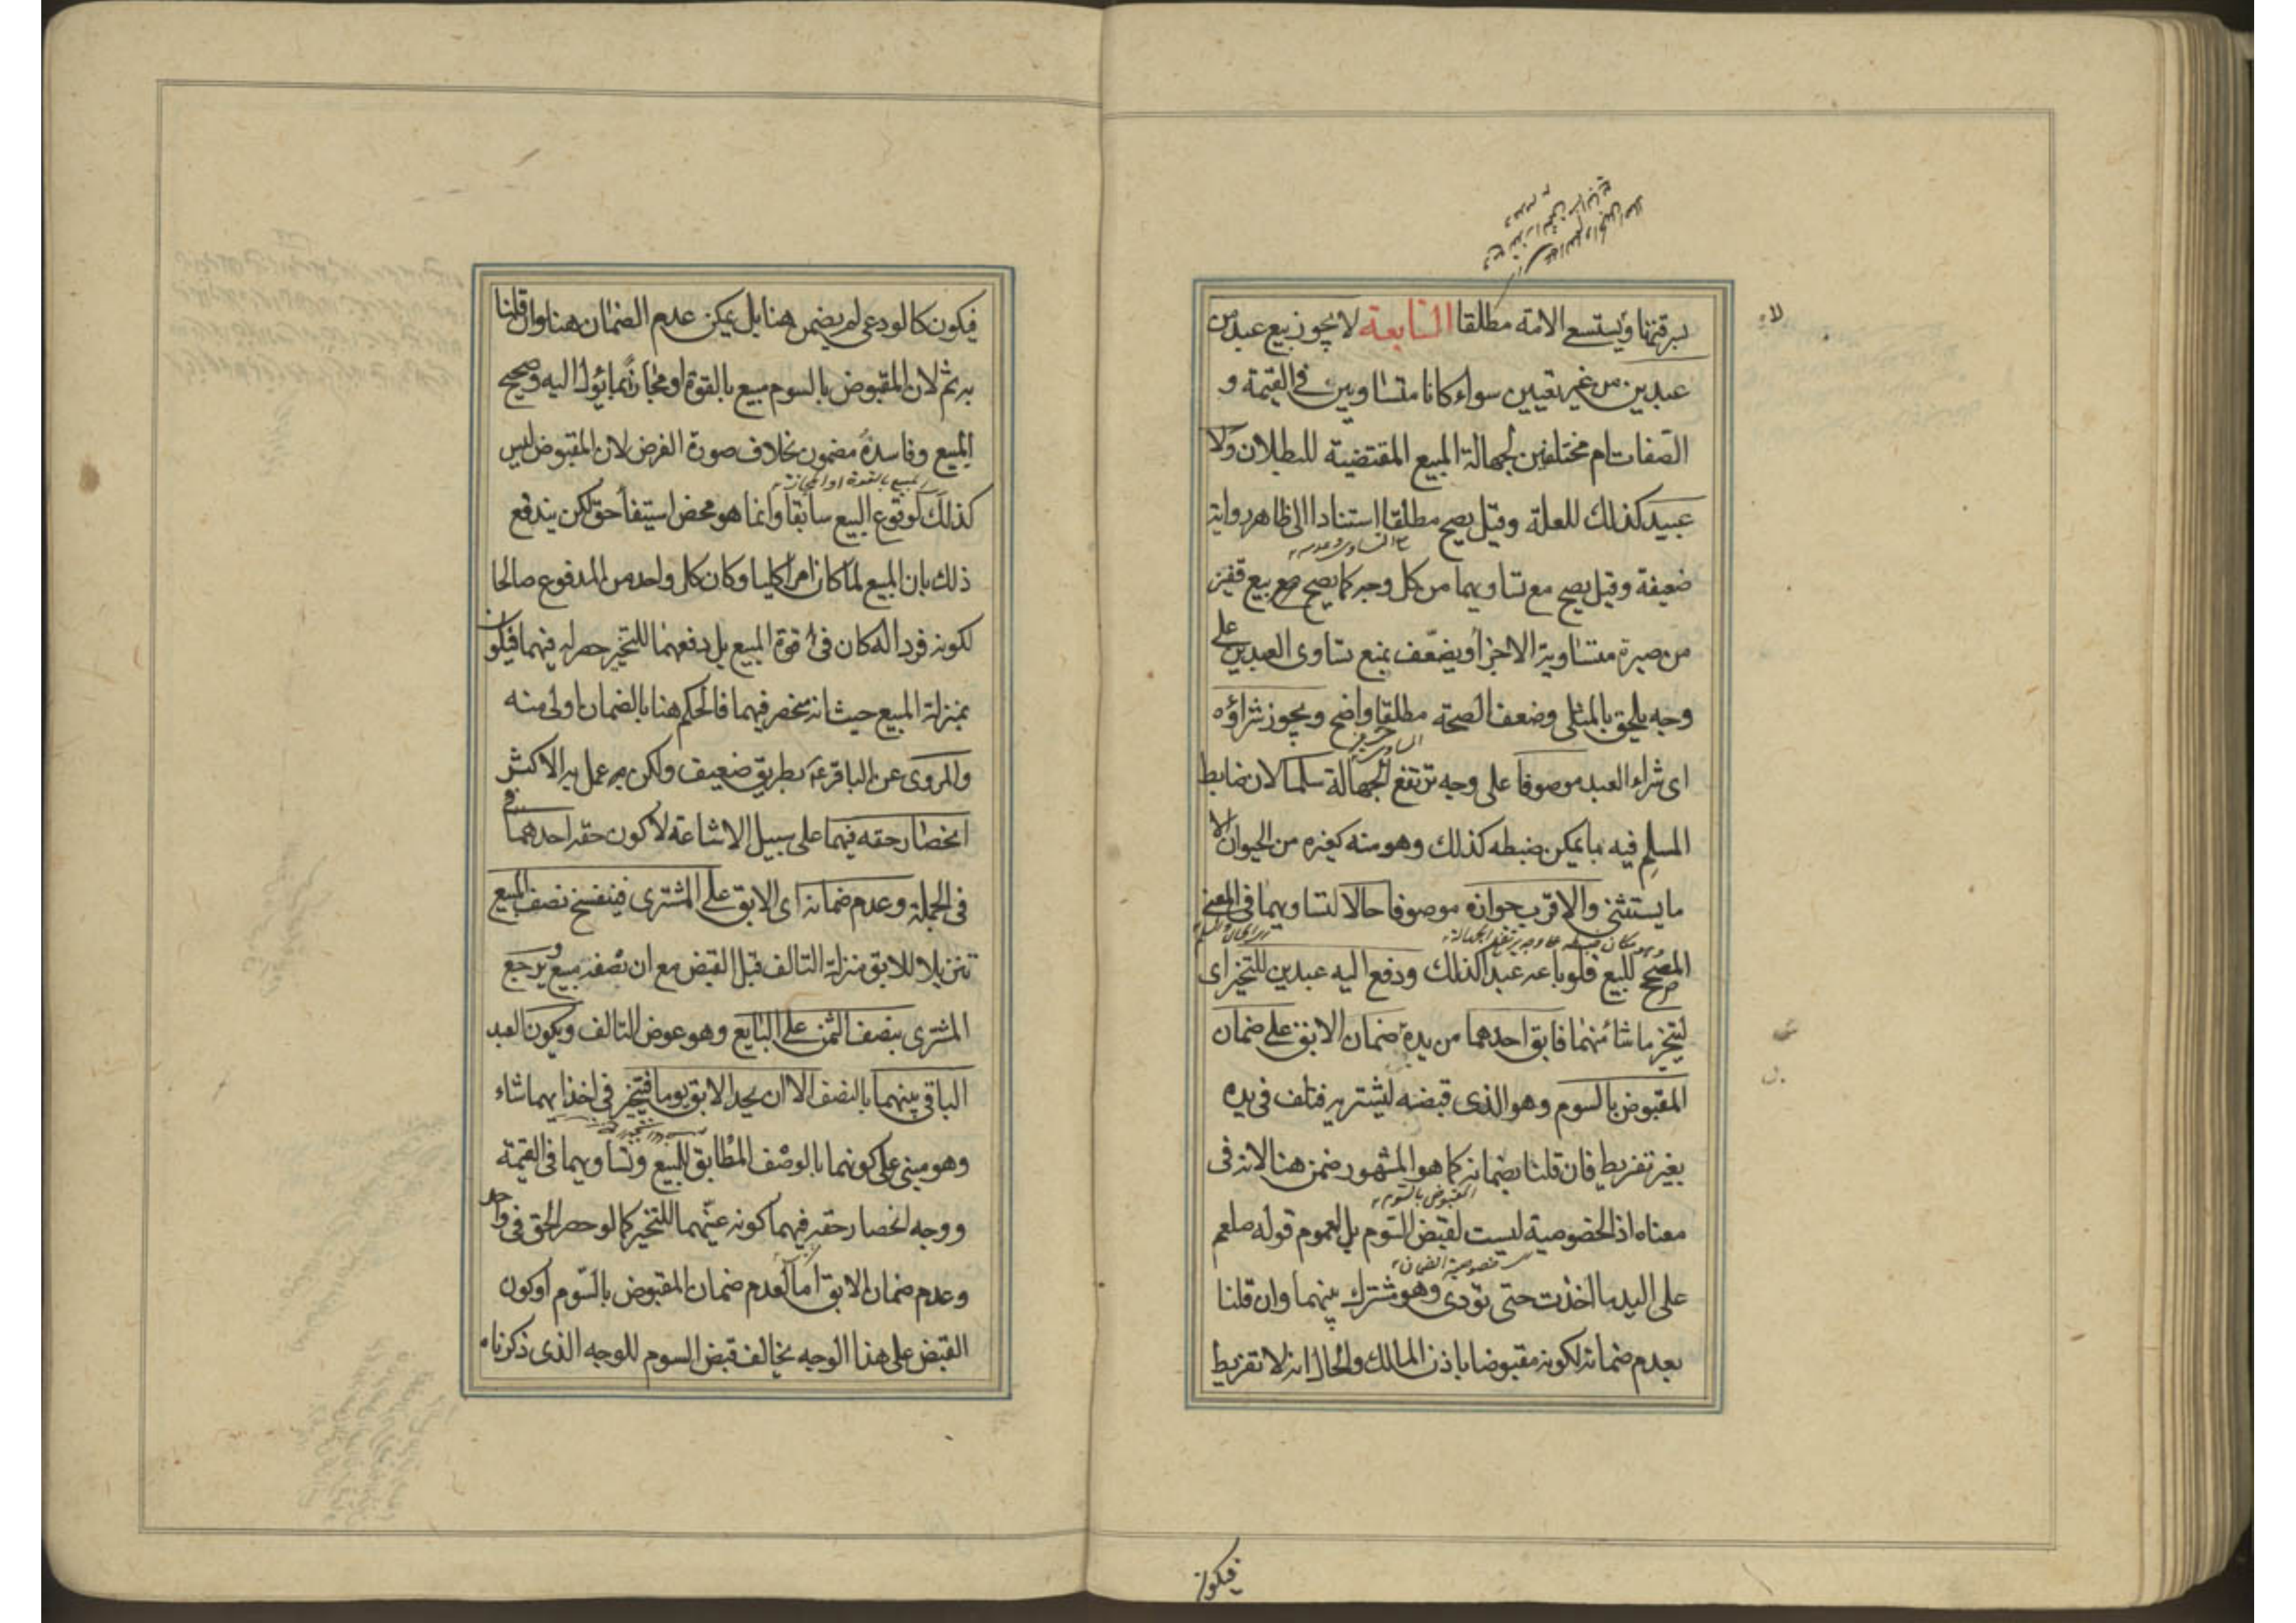 برقيتها ويستسع الامة مطلقا السابعة لا يجوز بيع عبد من
عبدين من غير تعيين سواء كانا متساويين في القيمة و
الصفات ام مختلفين لجهالة المبيع المقتضية للبطلان ولا
عبيد كذلك للعلة وقيل يصح مطلقا استنادا الى ظاهر رواية
التساوى وعدمه
ضعيفة وقيل يصح مع تساويهما من كل وجه كما يصح بيع قفيز
من صبرة متساوية الاجزاء ويضعف بمنع تساوى العبدين على
وجه يلحق بالمثلى وضعف الصحة مطلقا واضح ويجوز شراؤه
اى شراء العبد موصوفا على وجه ترتفع الجهالة سلما لان ضابط
المسلم فيه ما يمكن ضبطه كذلك وهو منه كغيره من الحيوان الا
ما يستثنى والاقرب جوازه موصوفا حالا لتساويهما في المعنى
وهو مكان ضبطه على وجه يرتفع الجهالة
المصحح للبيع فلو باعه عبدا كذلك ودفع اليه عبدين للتخير اى
ليتخير ما شاء منهما فابق احدهما من يده ضمان الابق على ضمان
المقبوض بالسوم وهو الذى قبضه ليشتريه فتلف في يده
بغير تفريط فان قلنا بضمانه كما هو المشهور ضمن هنا لانه في
المقبوض بالسوم
معناه اذ الخصوصية ليست لقبض السوم بل لعموم قوله صلعم
خصوصية الضمان
على اليد ما اخذت حتى تؤدى وهو مشترك بينهما وان قلنا
بعدم ضمانه لكونه مقبوضا باذن المالك والحال انه لا تفريط
فيكون
فيكون كالودعى لم يضمن هنا بل يمكن عدم الضمان هنا وان قلنا
به ثم لان المقبوض بالسوم مبيع بالقوة او مجازا بما يؤل اليه وصحيح
المبيع وفاسده مضمون بخلاف صورة الفرض لان المقبوض ليس
المبيع بالقوة او المجاز
كذلك لوقوع البيع سابقا وانما هو محض استيفاء حق لكن يندفع
ذلك بان المبيع لما كان امرا كليا وكان كل واحد من المدفوع صالحا
لكونه فردا له كان في قوة المبيع بل دفعهما للتخير حصر له فيهما فيكون
بمنزلة المبيع حيث انه منحصر فيهما فالحكم هنا بالضمان اولى منه
والمروى عن الباقر ع بطريق ضعيف ولكن عمل به الاكثر
انحصار حقه فيهما على سبيل الاشاعة لا كون حقه احدهما
في الجملة وعدم ضمانه اى الابق على المشترى فينفسخ نصف المبيع
تنزيلا للابق منزلة التالف قبل القبض مع ان نصفه مبيع ويرجع
المشترى بنصف الثمن على البايع وهو عوض التالف ويكون العبد
الباقى بينهما بالنصف الا ان يجد الابق يوما فيتخير في اخذ ايهما شاء
وهو مبنى على كونهما بالوصف المطابق للمبيع وتساويهما في القيمة
ووجه انحصار حقه فيهما كونه عينهما للتخير كما لو حصر الحق في واحد
وعدم ضمان الابق اما لعدم ضمان المقبوض بالسوم او كون
القبض على هذا الوجه يخالف قبض السوم للوجه الذى ذكرناه